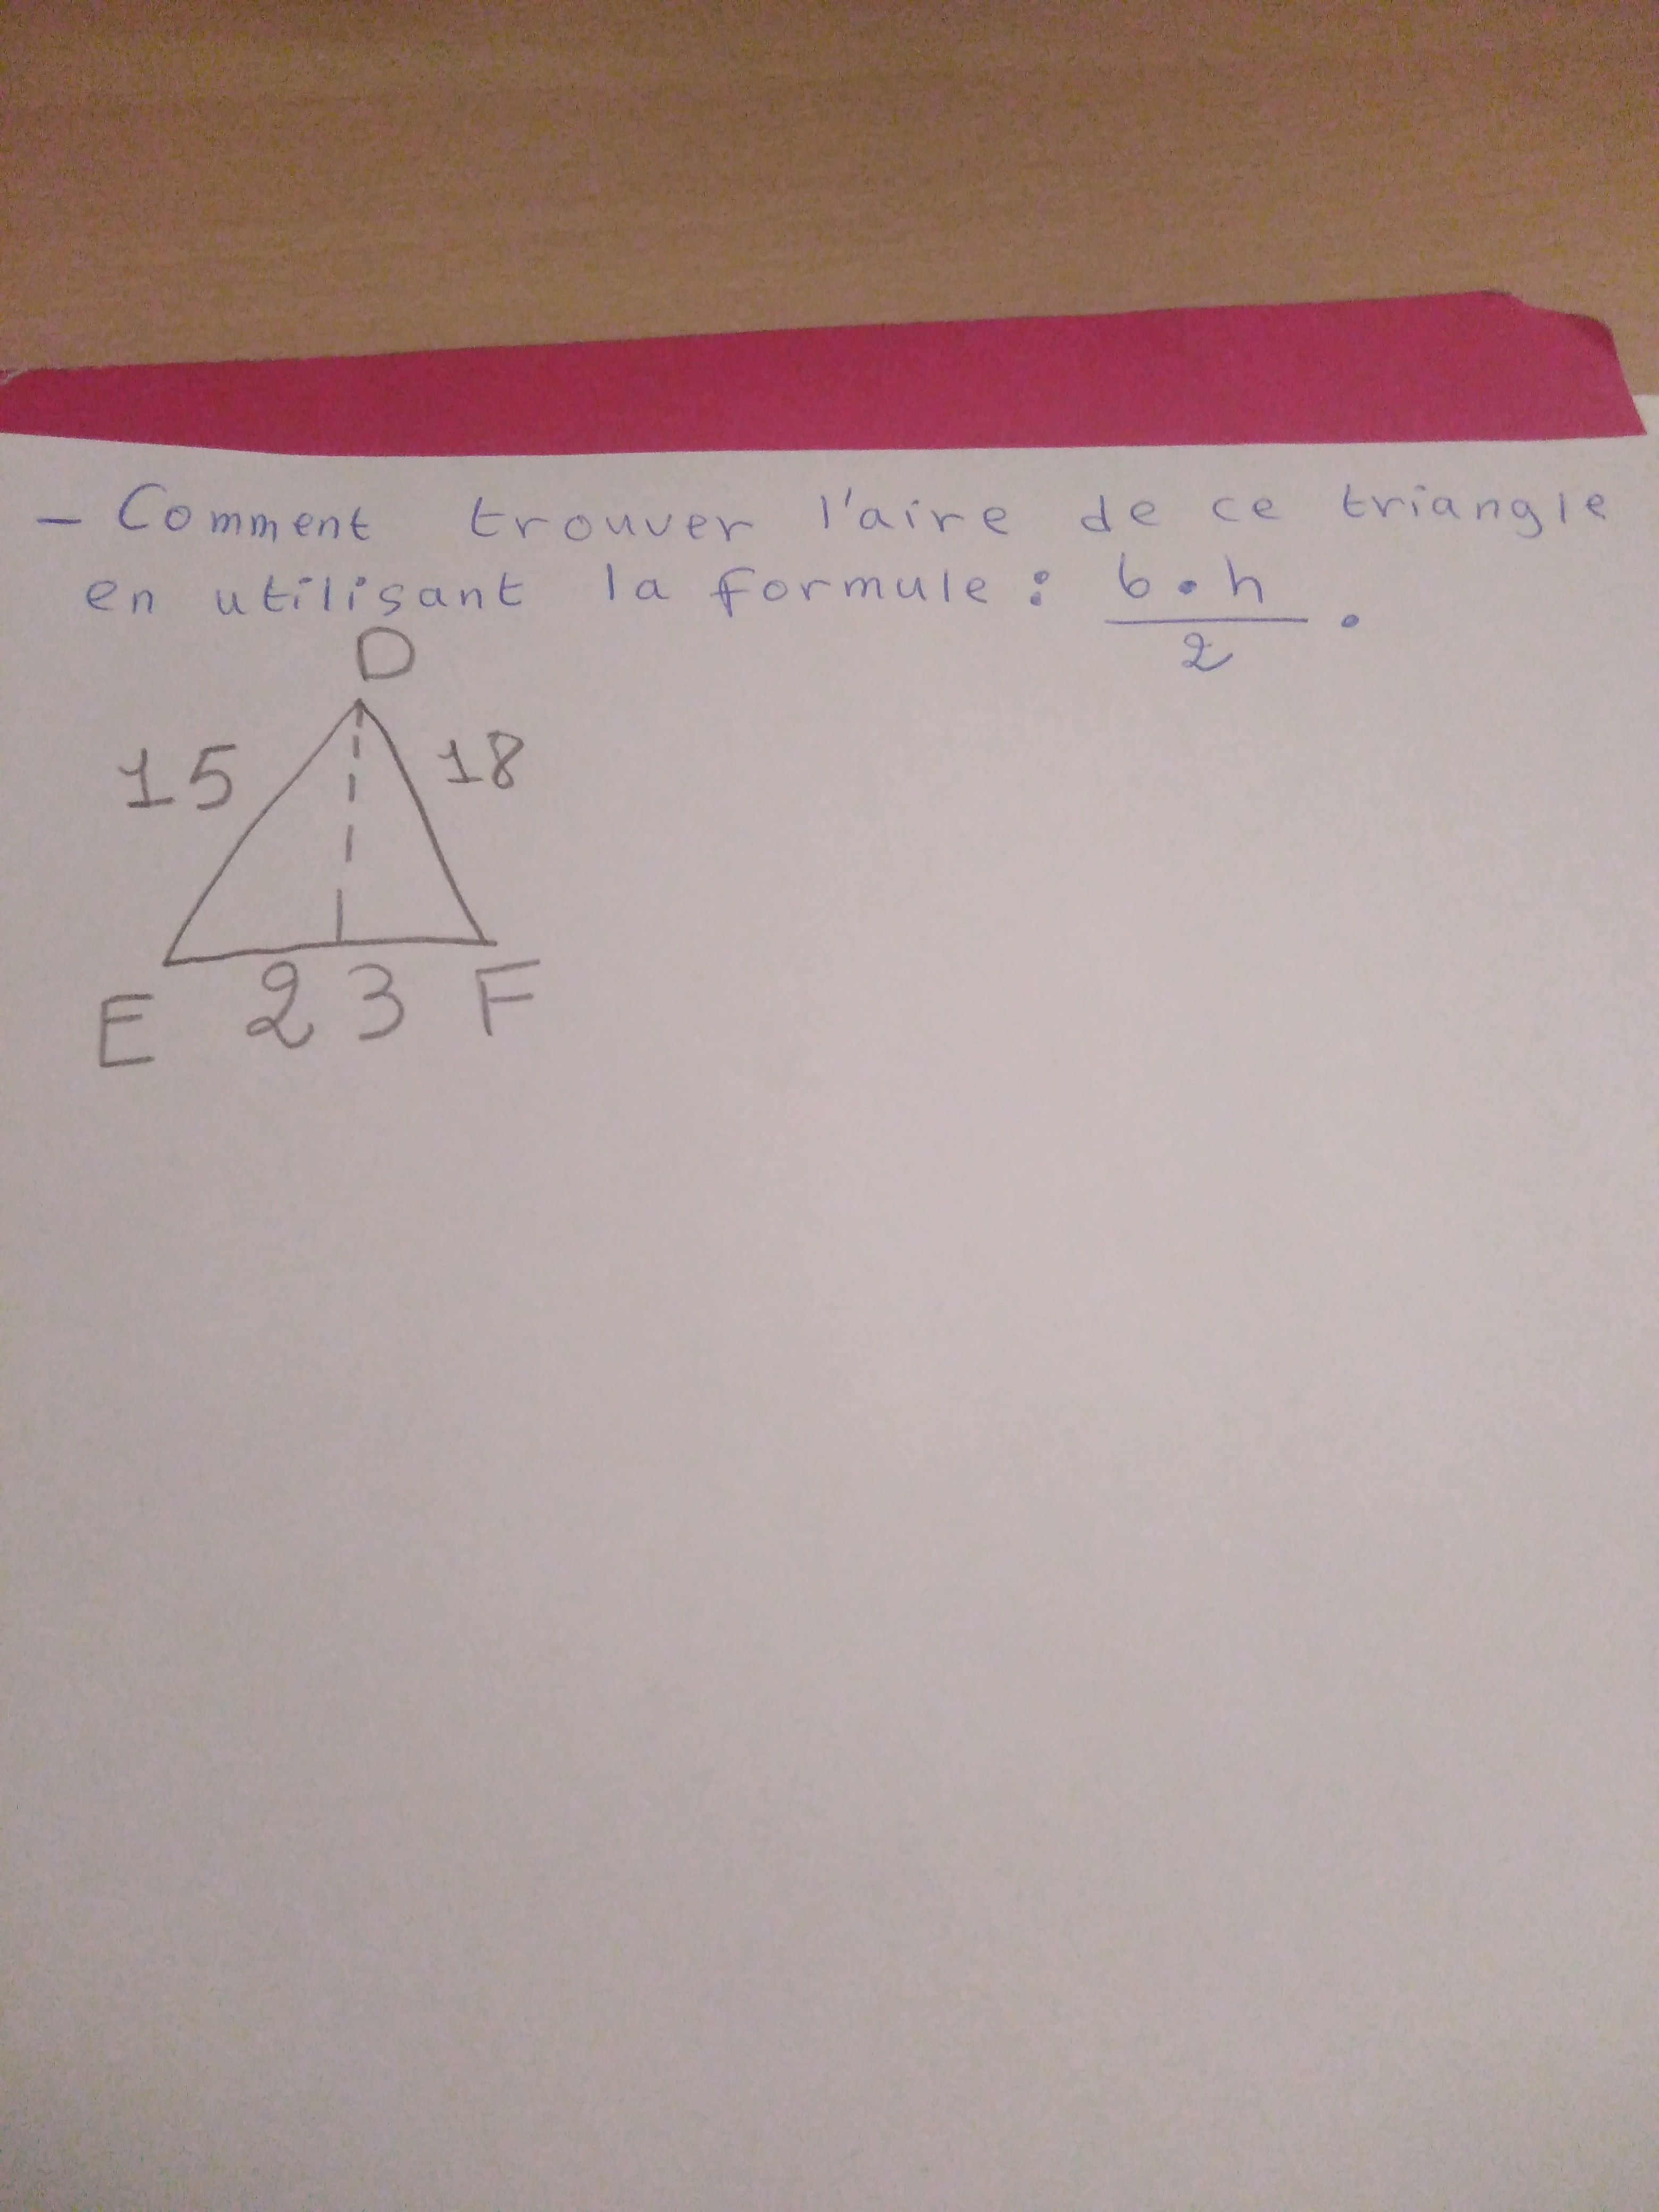 - Comment trouver l'aire de ce triangle
en utilisant la formule : b • h
2 .
D
15 18
E 23 F